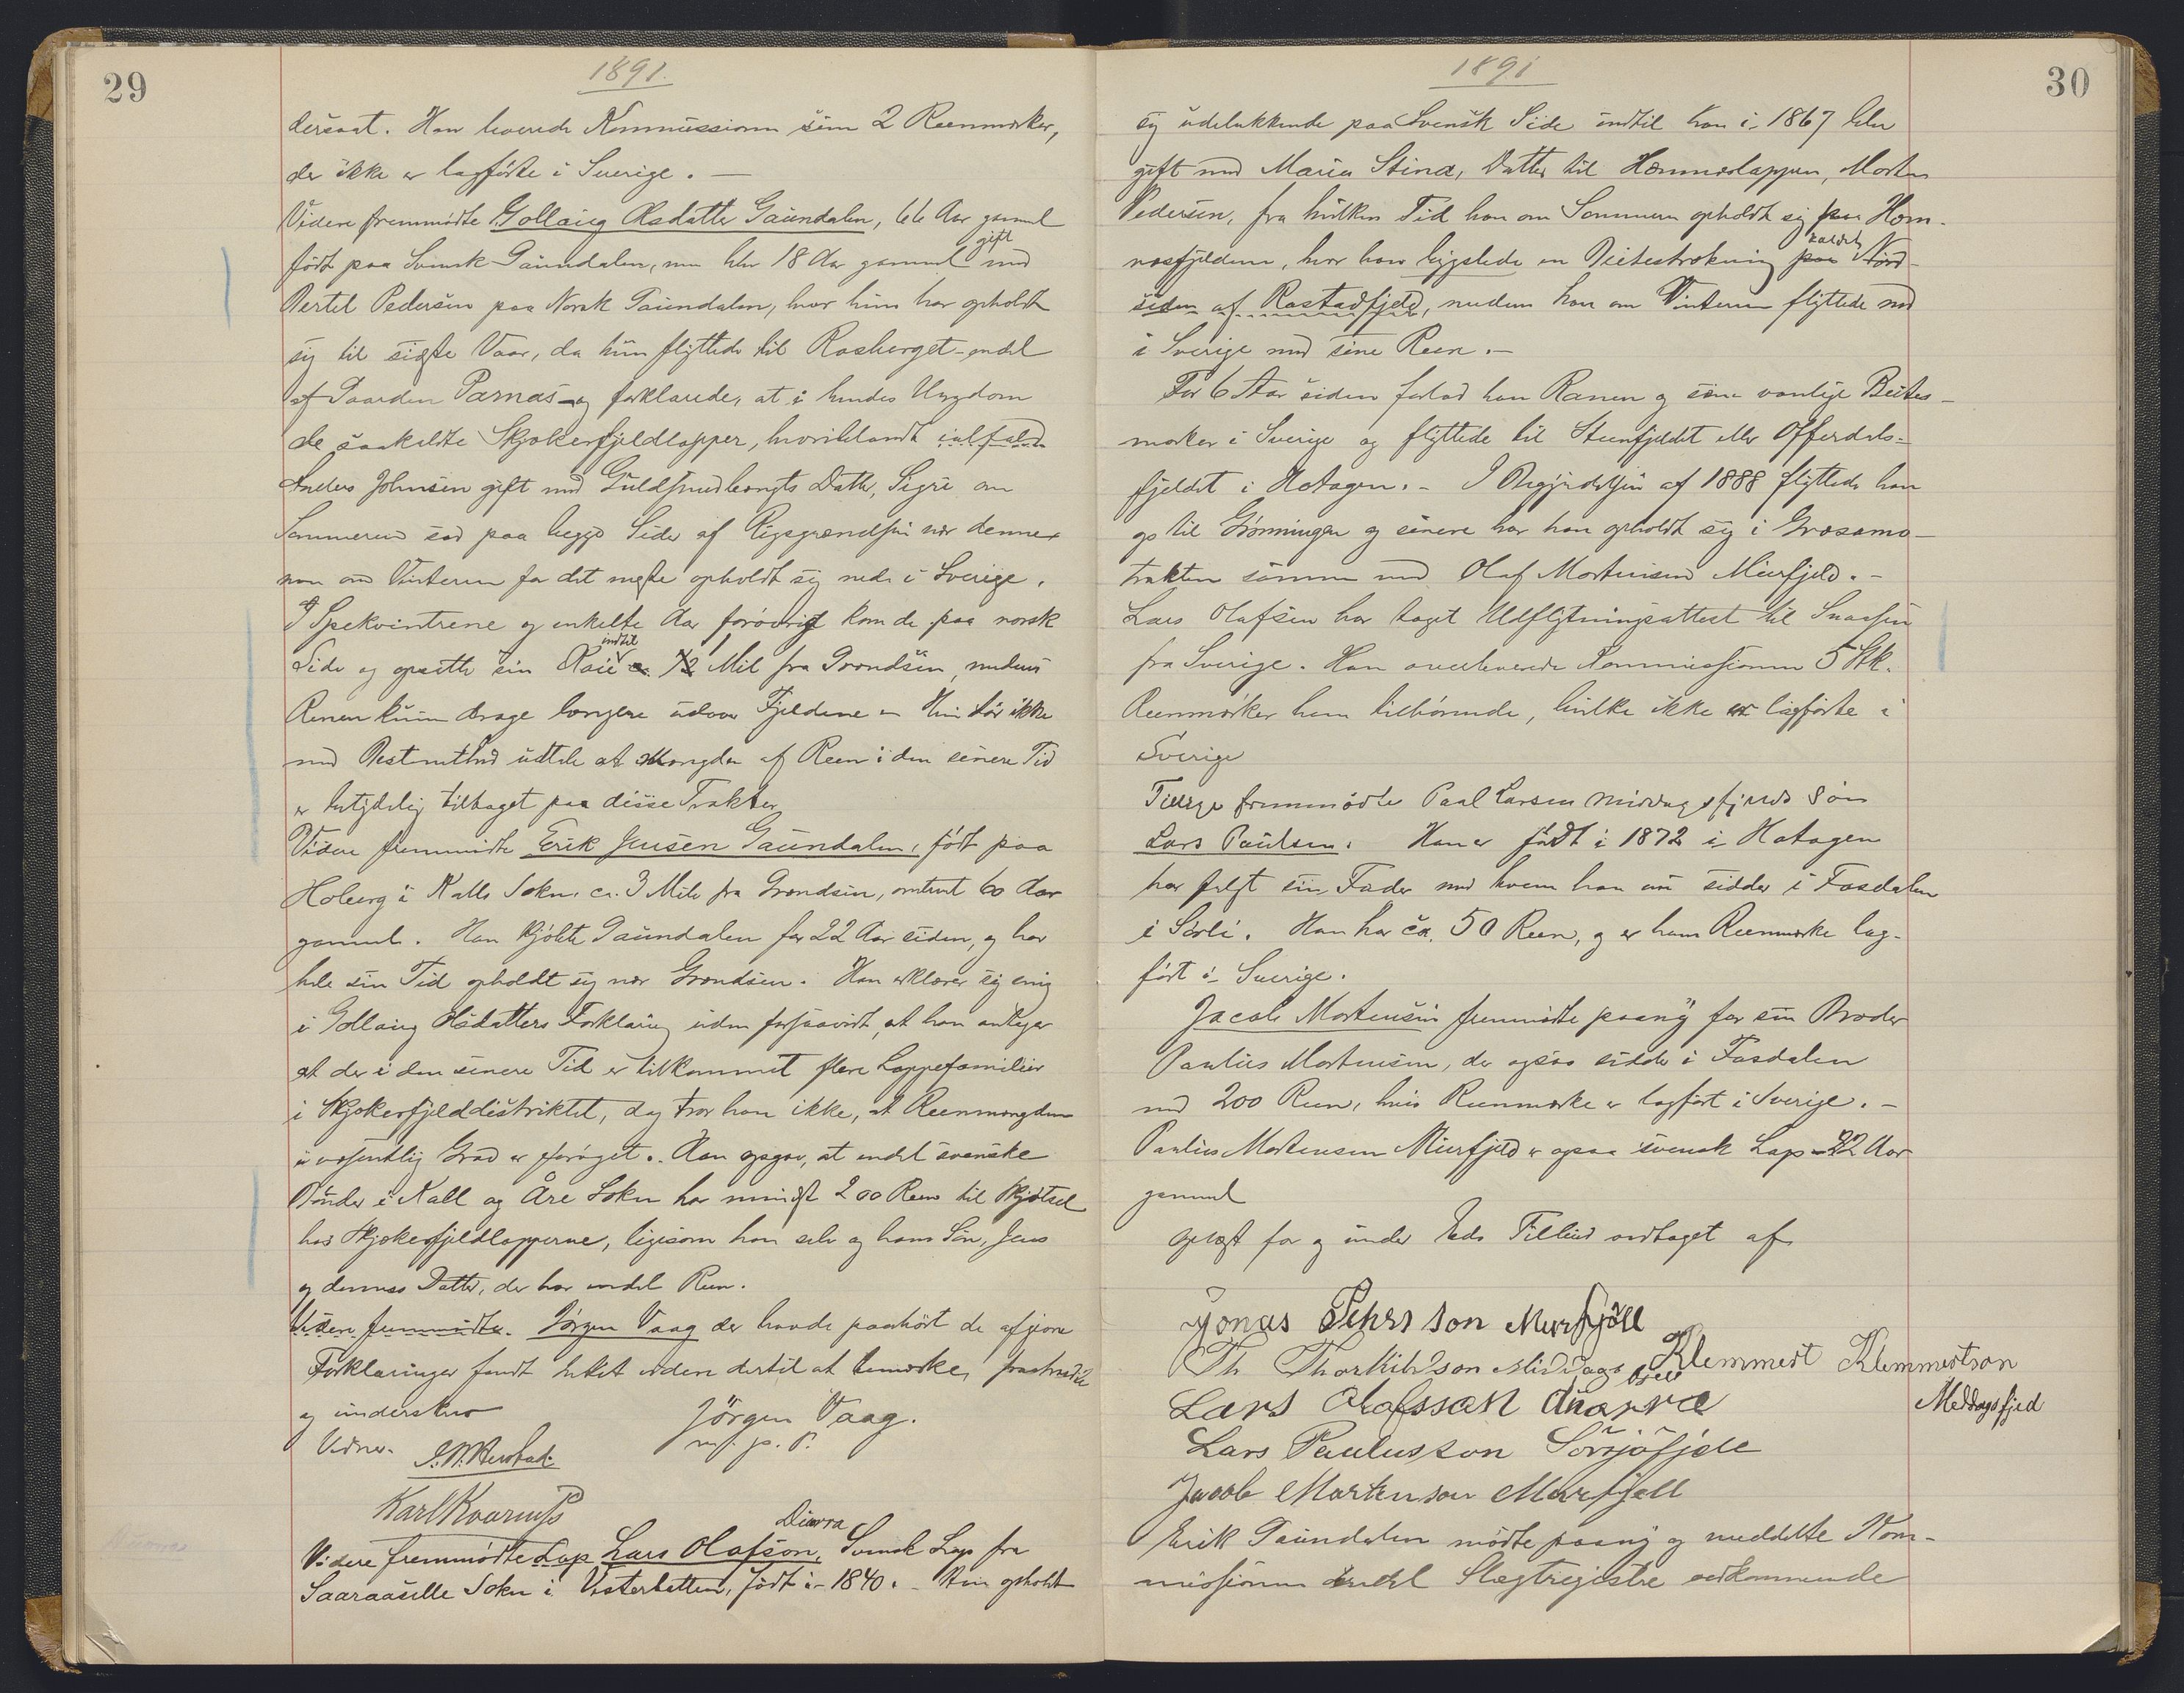 29
1891.
dersaat. Han leverede Kommissionen sine 2 Reenmærker,
der ikke er lagførte i Sverige. —
Videre fremmødte Gollaug Olsdatter Gaundalen, 66 Aar gammel
født paa Svensk Gaundalen, men blev 18 Aar gammel gift med
Bertel Pedersen paa Norsk Gaundalen, hvor hun har opholdt
sig til sidste Vaar, da hun flyttede til Rosberget – endel
af Gaarden Parnas – og forklarede, at i hendes Ungdom
de saakaldte Skjækerfjeldlapper, hvoriblandt ialfald
Anders Johnsen gift med Guldsmedbengts Datter, Sigri om
Sommeren sad paa begge Sider af Rigsgrændsen nær denne
men om Vinteren for det meste opholdt sig nede i Sverige.
I Spekvintrene og enkelte Aar forøvrigt kom de paa norsk
Side og opsatte sin Raie indtil 1/2 Mil fra Grændsen, medens
Renen kunde drage længere udover Fjeldene – Hun tør ikke
med Bestemthed udtale at Mængden af Reen i den senere Tid
er betydelig tiltaget paa disse Trakter
Videre fremmødte Erik Jensen Gaundalen, født paa
Holberg i Kalls Sokn ca. 3 Mile fra Grændsen, omtrent 60 Aar
gammel. Han kjøbte Gaundalen for 22 Aar siden, og har
hele sin Tid opholdt sig nær Grændsen. Han erklærer sig enig
i Gollaug Olsdatters Forklaring uden forsaavidt, at han antager
at der i den senere Tid er tilkommet flere Lappefamilier
i Skjækerfjelddistriktet, dog tror han ikke, at Reenmængden
i væsentlig Grad er forøget. Han opgav, at endel svenske
Bønder i Kall og Åre Sokn har mindst 200 Reen til Skjøtsel
hos Skjækerfjeldlapperne, ligesom han selv og hans Søn, Jens
og dennes Datter, der har endel Reen.
Videre fremmødte. Jörgen Vaag der havde paahört de afgivne
Forklaringer fandt Intet videre dertil at bemærke, fratraadte
og underskrev
Jörgen Vaag.
m. f. p. P.
Vidner.
Karl Kvarnes
Videre fremmødte Lap Lars Olafson, Diurra Svensk Lap fra
Saaraasille Sokn i Vesterbotten, født i 1840. – Han opholdt
30
1891
sig udelukkende paa Svensk Side indtil han i 1867 blev
gift med Maria Stina, Datter til Hæmneslappen, Morten
Pedersen, fra hvilken Tid han om Sommeren opholdt sig paa Hæm-
næsfjeldene, hvor han bygslede en Beitestrækning kaldet Nord-
siden af Rastadfjeld, medens han om Vinteren flyttede ned
i Sverige med sine Reen. –
For 6 Aar siden forlod han Ranen og sine vanlige Beites-
marker i Sverige og flyttede til Steenfjeldet eller Offerdals-
fjeldet i Hotagen. – I Begyndelsen af 1888 flyttede han
op til Grønningen og senere har han opholdt sig i Græsamo-
trakten sammen med Olaf Mortensen Mierfjeld. –
Lars Olafsen har taget Udflytningsattest til Snaasen
fra Sverige. Han overleverede Kommissionen 5 Stk.
Reenmærker ham tilhørende, hvilke ikke er lagførte i
Sverige
Tillige fremmødte Paal Larsen Middagsfjelds Søn
Lars Paulsen. Han er født i 1872 i Hotagen
har fulgt sin Fader med hvem han nu sidder i Fosdalen
i Sørli. Han har ca. 50 Reen, og er hans Reenmærke lag-
ført i Sverige.
Jacob Mortensen fremmødte paany for sin Broder
Paulus Mortensen, der ogsaa sidder i Fosdalen
med 200 Reen, hvis Reenmærke er lagført i Sverige. –
Paulus Mortensen Mierfjeld er ogsaa svensk Lap – 22 Aar
gammel
Oplæst for og under Eds Tilbud vedtaget af
Jonas Pehrsson Murfjäll
Th Thorkihlson Middagsfjell
Klemmert Klemmertson
Meddagsfjed
Lars Olofsson
Lars Paulusson Sörsjöfjell
Jacob Martenson Murfjäll
Erik Gaundalen mødte paany og meddelte Kom-
missionen endel Slægtregistre vedkommende